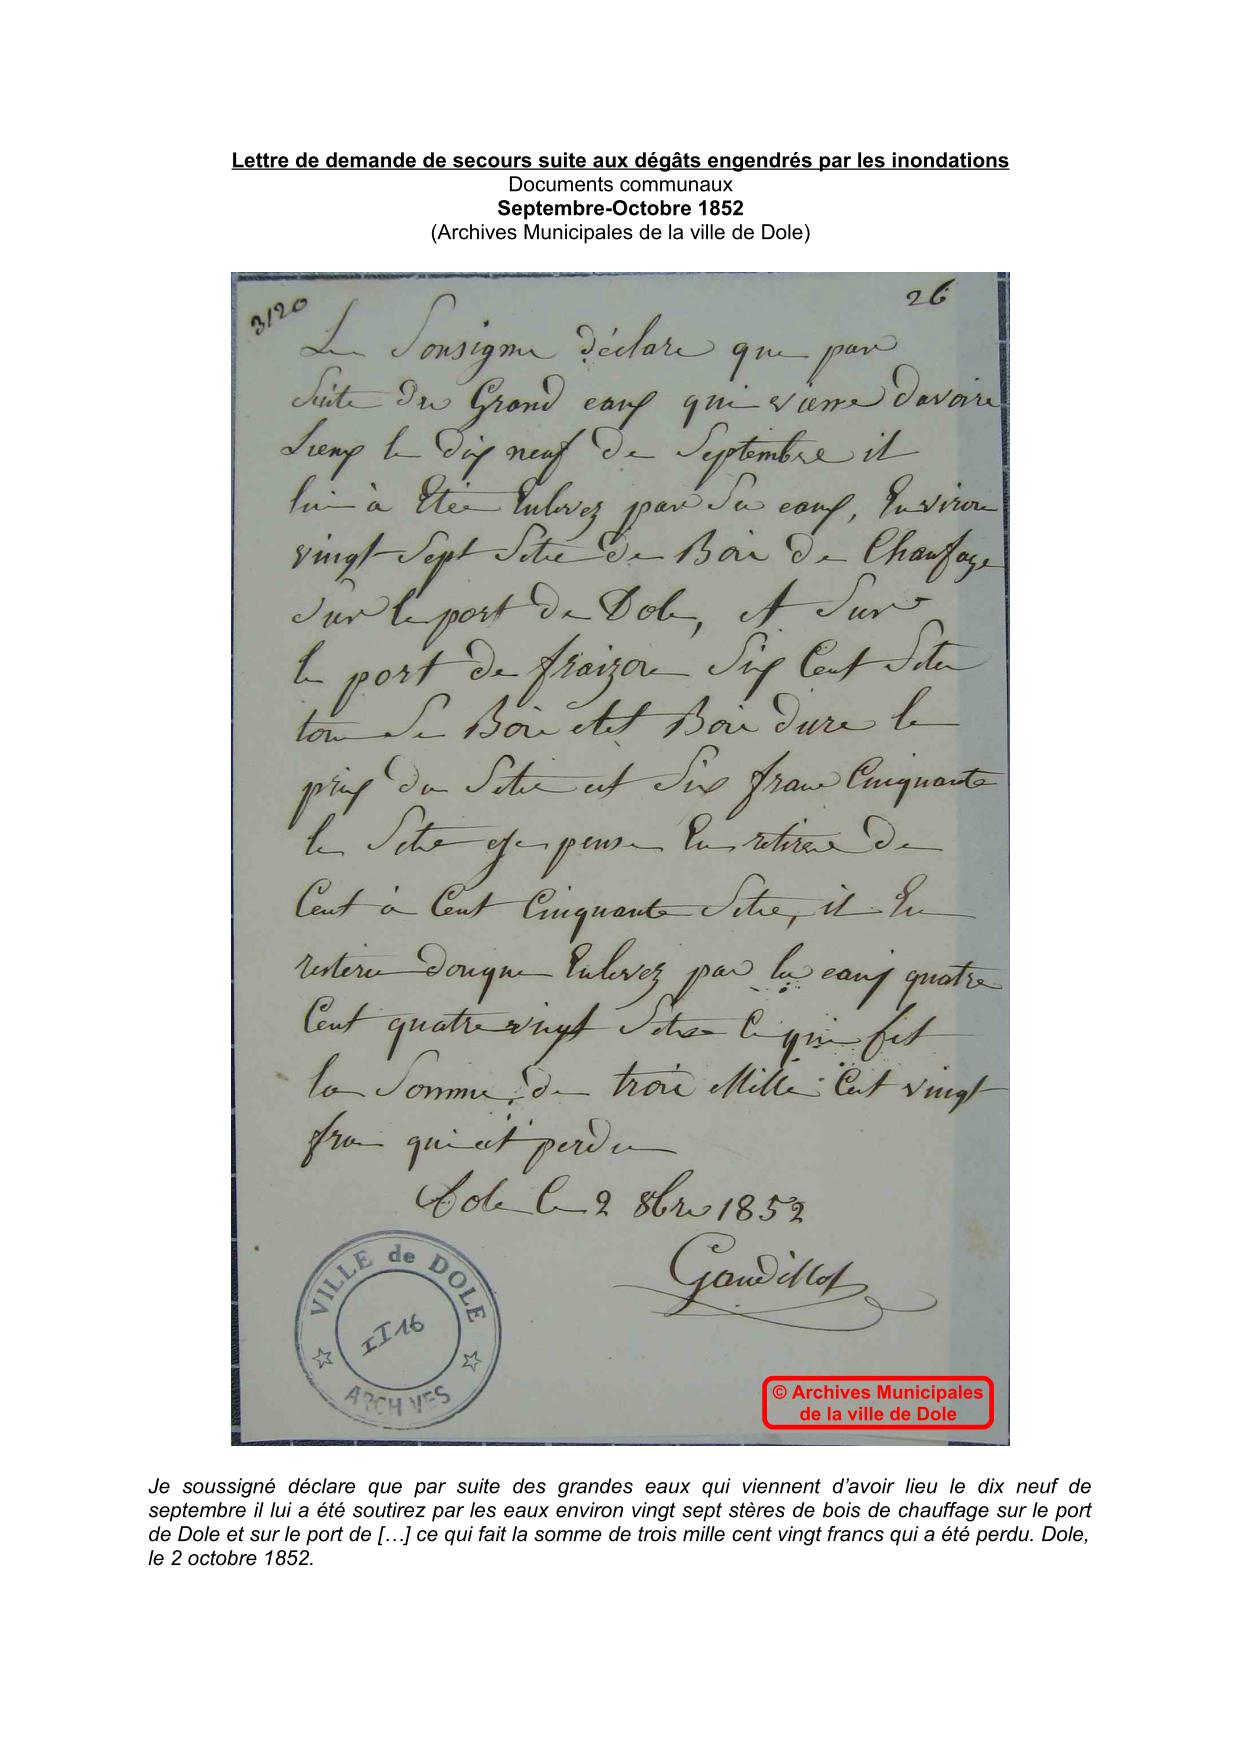 Lettre de demande de secours suite aux dégâts engendrés par les inondations
Documents communaux
Septembre-Octobre 1852
(Archives Municipales de la ville de Dole)
3120
26
Le Sousigne déclare que par
Suite du Grand eaux qui vienne davoire
Lieux le dix neuf de Septembre il
lui à Etée Enlevez par Se eaux, Environ
vingt Sept Stere de Boie de Chaufage
Sur le port de Dole, et Sur
le port de fraizon Six Cent Stere
tou Se Boie etet Boie dure le
prix du Stere et Six franc Cinquante
le Stere et je pense En retirere de
Cent à Cent Cinquante Stere, il En
restere donque Enlevez par les eaux quatre
Cent quatre vingt Stere Ce qui fet
la Somme de troie Mille Cent vingt
fran qui et perdu
Dole le 2 8bre 1852
Gaudillot
VILLE de DOLE
II16
ARCHIVES
© Archives Municipales
de la ville de Dole
Je soussigné déclare que par suite des grandes eaux qui viennent d’avoir lieu le dix neuf de
septembre il lui a été soutirez par les eaux environ vingt sept stères de bois de chauffage sur le port
de Dole et sur le port de […] ce qui fait la somme de trois mille cent vingt francs qui a été perdu. Dole,
le 2 octobre 1852.